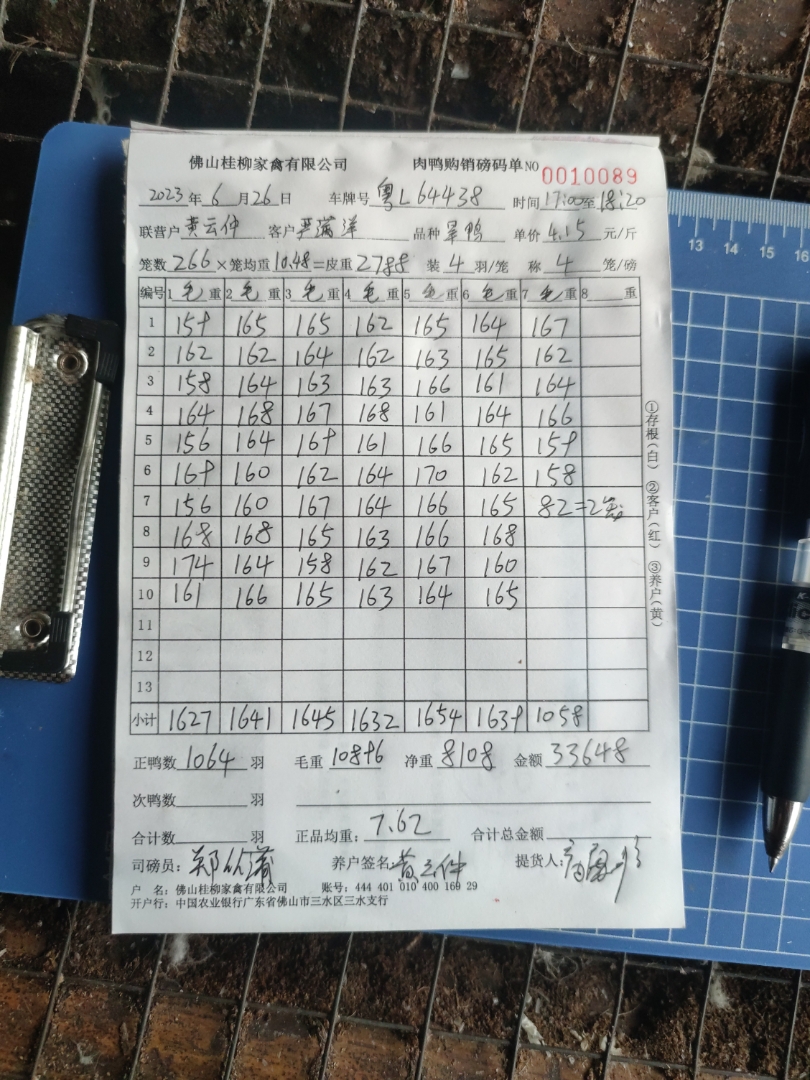 佛山桂柳家禽有限公司 肉鸭购销磅码单NO 0010089
2023年6月26日 车牌号粤L64438 时间17:00至18:20
联营户黄云仲 客户严满洋 品种旱鸭 单价4.15元/斤
笼数266×笼均重10.48=皮重2788 装4羽/笼 称4笼/磅
编号 1毛重 2毛重 3毛重 4毛重 5毛重 6毛重 7毛重 8重
1 159 165 165 162 165 164 167
2 162 162 164 162 163 165 162
3 158 164 163 163 166 161 164
4 164 168 167 168 161 164 166
5 156 164 169 161 166 165 159
6 169 160 162 164 170 162 158
7 156 160 167 164 166 165 82=2笼
8 168 168 165 163 166 168
9 174 164 158 162 167 160
10 161 166 165 163 164 165
11
12
13
小计 1627 1641 1645 1632 1654 1639 1058
正鸭数1064羽 毛重10896 净重8108 金额33648
次鸭数羽
合计数羽 正品均重:7.62 合计总金额
司磅员: 养户签名:黄云仲 提货人:
户 名:佛山桂柳家禽有限公司 账号:444 401 010 400 169 29
开户行:中国农业银行广东省佛山市三水区三水支行
①存根(白) ②客户(红) ③养户(黄)
13 14 15 16